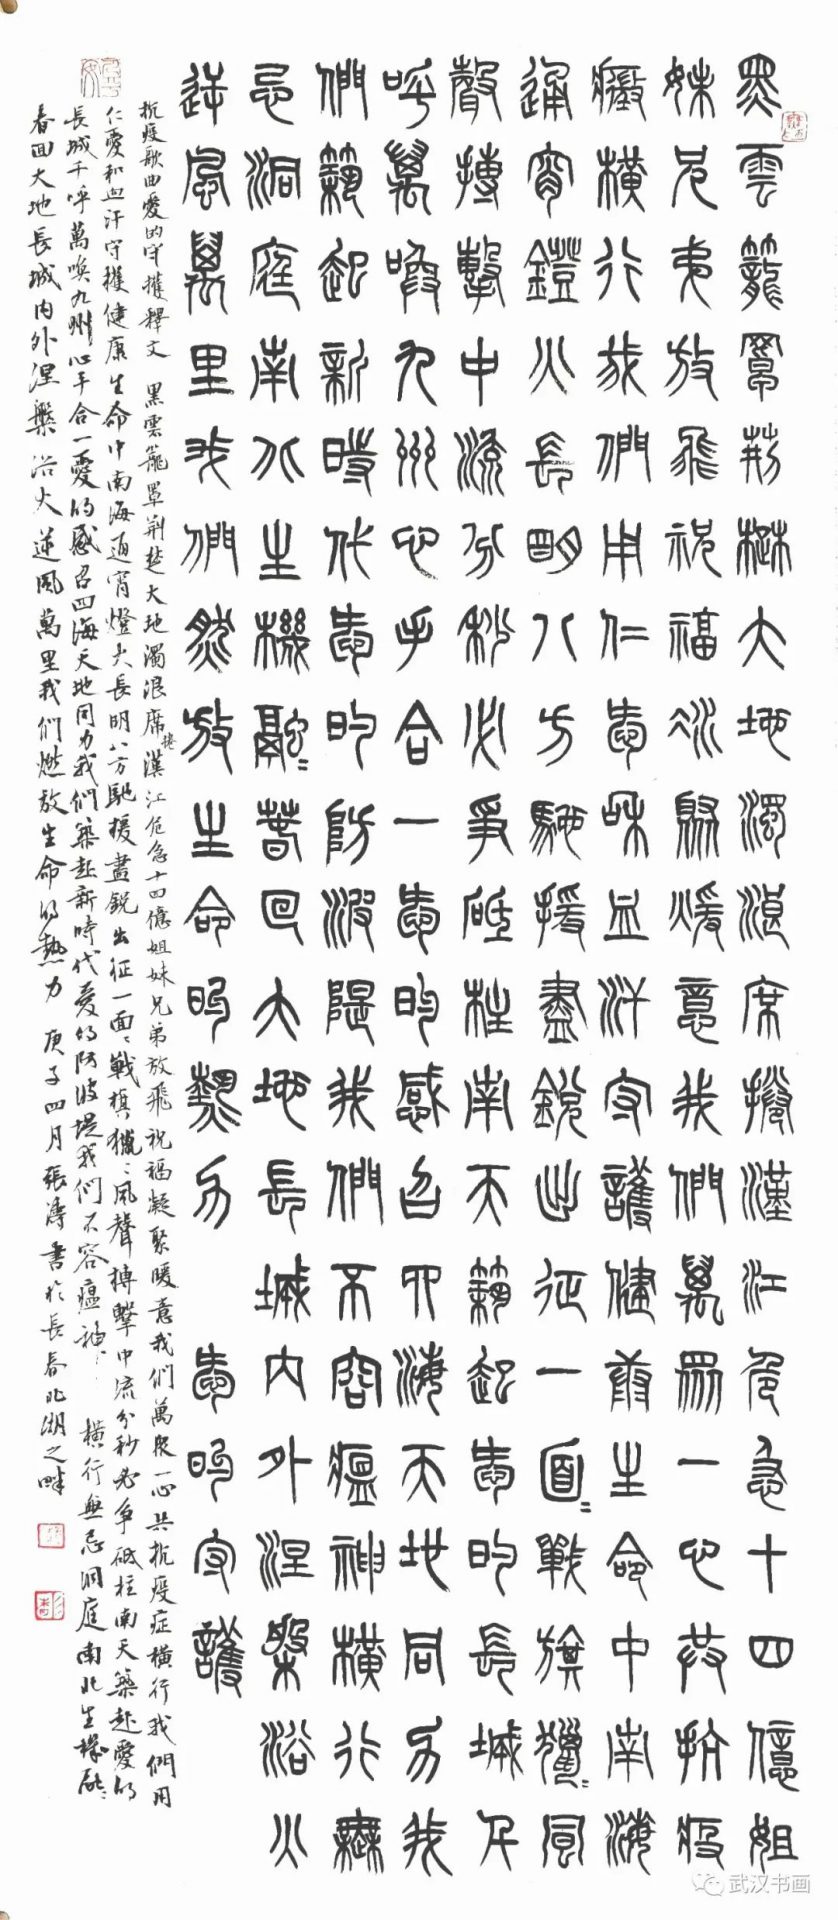 黑雲籠罩荊楚大地濁浪席捲漢江危急十四億姐
妹兄弟放飛祝福凝聚暖意我們萬眾一心共抗疫
癥橫行我們用仁愛和血汗守護健康生命中南海
通宵鐙火長明八方馳援盡銳出征一面〻戰旗獵〻風
聲搏擊中流分秒必爭砥柱南天築起愛的長城千
呼萬喚九州心手合一愛的感召四海天地同力我
們築起新時代愛的防波隄我們不容瘟神橫行無
忌洞庭南北生機融〻春回大地長城內外涅槃浴火
逆風萬里我們燃放生命的熱力 愛的守護
抗疫歌曲愛的守護釋文 黑雲籠罩荊楚大地濁浪席捲漢江危急十四億姐妹兄弟放飛祝福凝聚暖意我們萬眾一心共抗疫症橫行我們用
仁愛和血汗守護健康生命中南海通宵燈火長明八方馳援盡銳出征一面〻戰旗獵〻風聲搏擊中流分秒必爭砥柱南天築起愛的
長城千呼萬喚九州心手合一愛的感召四海天地同力我們築起新時代愛的防波堤我們不容瘟神 橫行無忌洞庭南北生機融〻
春回大地長城內外涅槃浴火逆風萬里我們燃放生命的熱力 庚子四月張濤書於長春北湖之畔
武汉书画